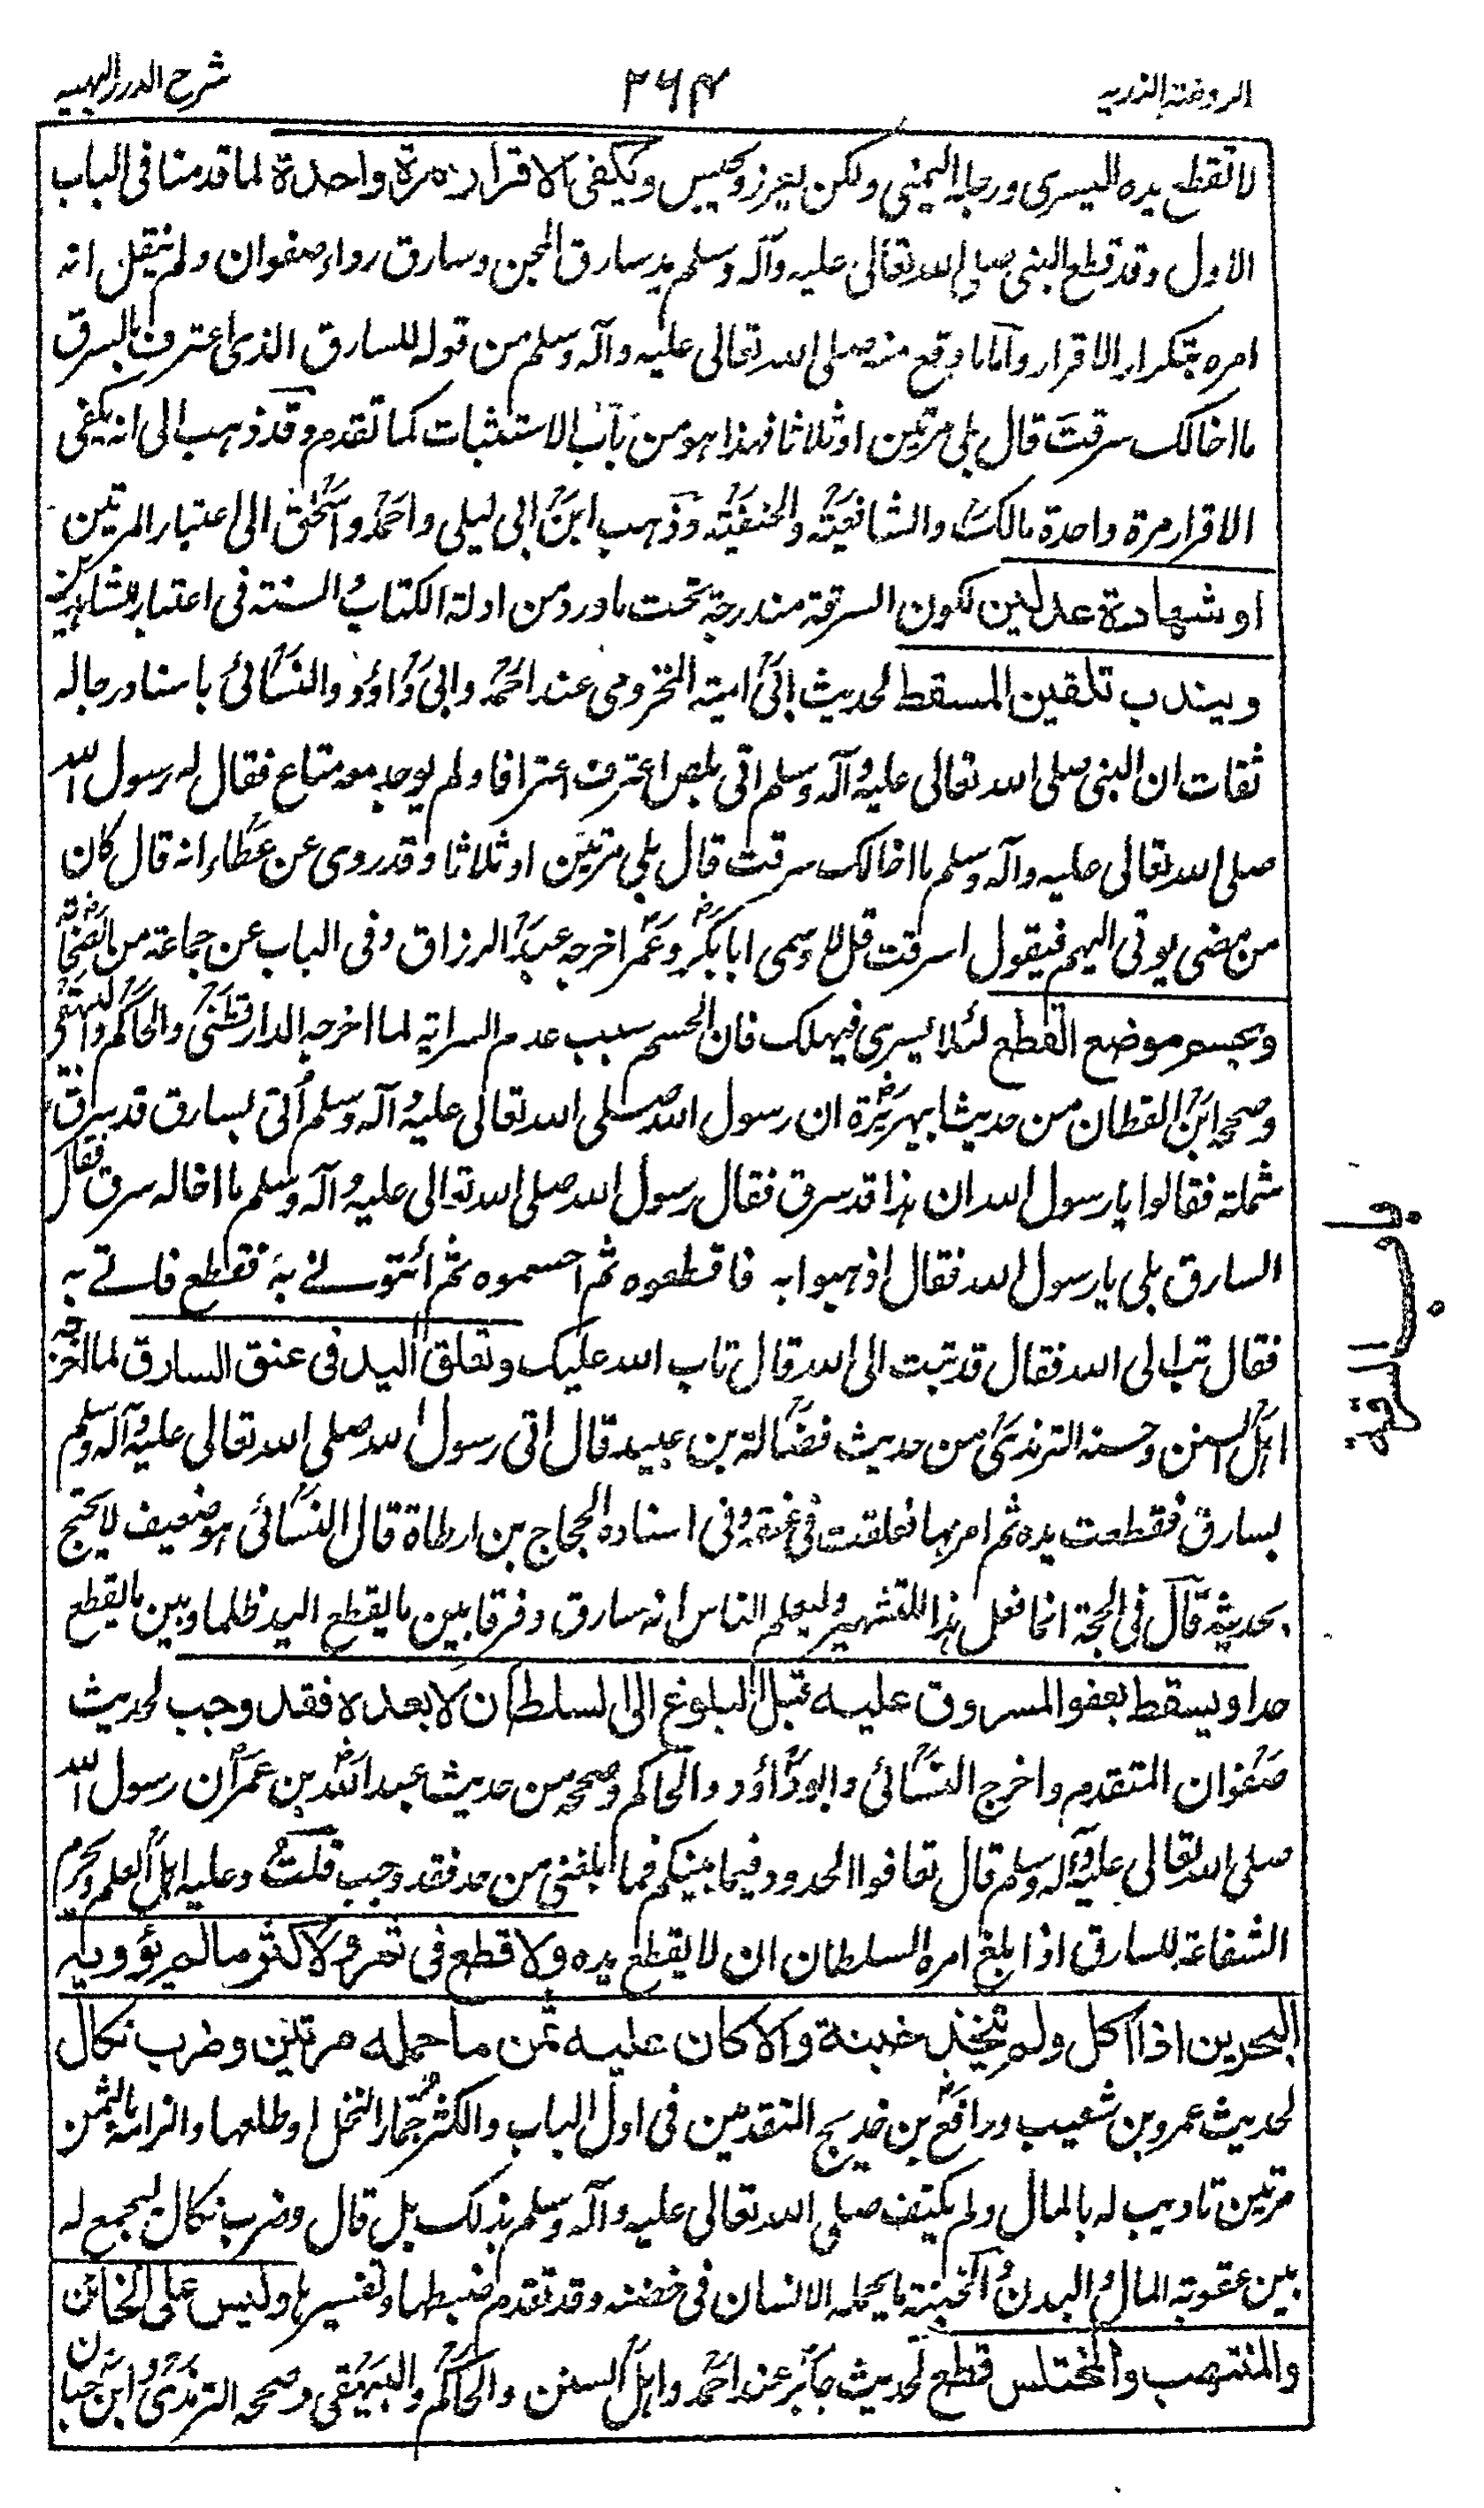 الروضة الندية ٢٦٣ شرح الدرر البهية
لا تقطع يده اليسرى ورجله اليمنى ولكن يعزر ويحبس ويكفى الاقرار مرة واحدة لما قدمنا فى الباب
الاول وقد قطع النبى صلى الله تعالى عليه وآله وسلم يد سارق المجن وسارق رداء صفوان ولم ينقل انه
امره بتكرار الاقرار وآما ما وقع منه صلى الله تعالى عليه وآله وسلم من قوله للسارق الذى اعترف بالسرق
ما اخالك سرقت قال بلى مرتين او ثلاثا فهذا هو من باب الاستثبات كما تقدم وقد ذهب الى انه يكفى
الاقرار مرة واحدة مالك والشافعية والحنفية وذهب ابن ابى ليلى واحمد واسحٰق الى اعتبار المرتين
او شهادة عدلين لكون السرقة مندرجة تحت ما ورد من ادلة الكتاب والسنة فى اعتبار الشاهدين
ويندب تلقين المسقط لحديث ابى امية المخزومى عند احمد وابى داؤد والنسائى باسناد رجاله
ثقات ان النبى صلى الله تعالى عليه وآله وسلم اتى بلص اعترف اعترافا ولم يوجد معه متاع فقال له رسول الله
صلى الله تعالى عليه وآله وسلم ما اخالك سرقت قال بلى مرتين او ثلاثا وقد روى عن عطاء انه قال كان
من مضى يوتى اليهم فيقول اسرقت قل لا وسمى ابابكر وعمر اخرجه عبد الرزاق وفى الباب عن جماعة من الصحابة
ويحسم موضع القطع لئلا يسرى فيهلك فان الحسم سبب عدم السراية لما اخرجه الدارقطنى والحاكم والبيهقى
وصححه ابن القطان من حديث ابيهريرة ان رسول الله صلى الله تعالى عليه وآله وسلم اُتى بسارق قد سرق
شملة فقالوا يا رسول الله ان هذا قد سرق فقال رسول الله صلى الله تعالى عليه وآله وسلم ما اخاله سرق فقال
السارق بلى يا رسول الله فقال اذهبوا به فاقطعوه ثم احسموه ثم ائتونى به فقطع فاتے به
فقال تب الى الله فقال قد تبت الى الله قال تاب الله عليك وتعلق اليد فى عنق السارق لما اخرجه
اهل السنن وحسنه الترمذى من حديث فضالة بن عبيد قال اتى رسول الله صلى الله تعالى عليه وآله وسلم
بسارق فقطعت يده ثم امر بها فعلقت فى عنقه وفى اسناده الحجاج بن ارطاة قال النسائى هو ضعيف لا يحتج
بحديثه قال فى الحجة انما فعل هذا للتشهير وليعلم الناس انه سارق وفرقا بين ما يقطع اليد ظلما وبين ما يقطع
حدا ويسقط بعفو المسروق عليه قبل البلوغ الى السلطان لا بعده فقد وجب لحديث
صفوان المتقدم واخرج النسائى وابوداؤد والحاكم وصححه من حديث عبد الله بن عمر ان رسول الله
صلى الله تعالى عليه وآله وسلم قال تعافوا الحدود فيما بينكم فما بلغنى من حد فقد وجب قلت وعليه اهل العلم ويحرم
الشفاعة للسارق اذا بلغ امره السلطان ان لا يقطع يده ولا قطع فى ثمر ولا كثر مالم يؤويه
الجرين اذا اكل ولم يتخذ خبنة والا كان عليه ثمن ما حمله مرتين وضرب نكال
لحديث عمرو بن شعيب ورافع بن خديج المتقدمين فى اول الباب والكثر جمار النخل او طلعها والزامه بالثمن
مرتين تاديب له بالمال ولم يكتف صلى الله تعالى عليه وآله وسلم بذلك بل قال وضرب نكال ليجمع له
بين عقوبة المال والبدن والخبنة ما يحمله الانسان فى حضنه وقد تقدم ضبطها وتفسيرها وليس على الخائن
والمنتهب والمختلس قطع لحديث جابر عند احمد واهل السنن والحاكم والبيهقى وصححه الترمذى وابن حبان
باب السرقة